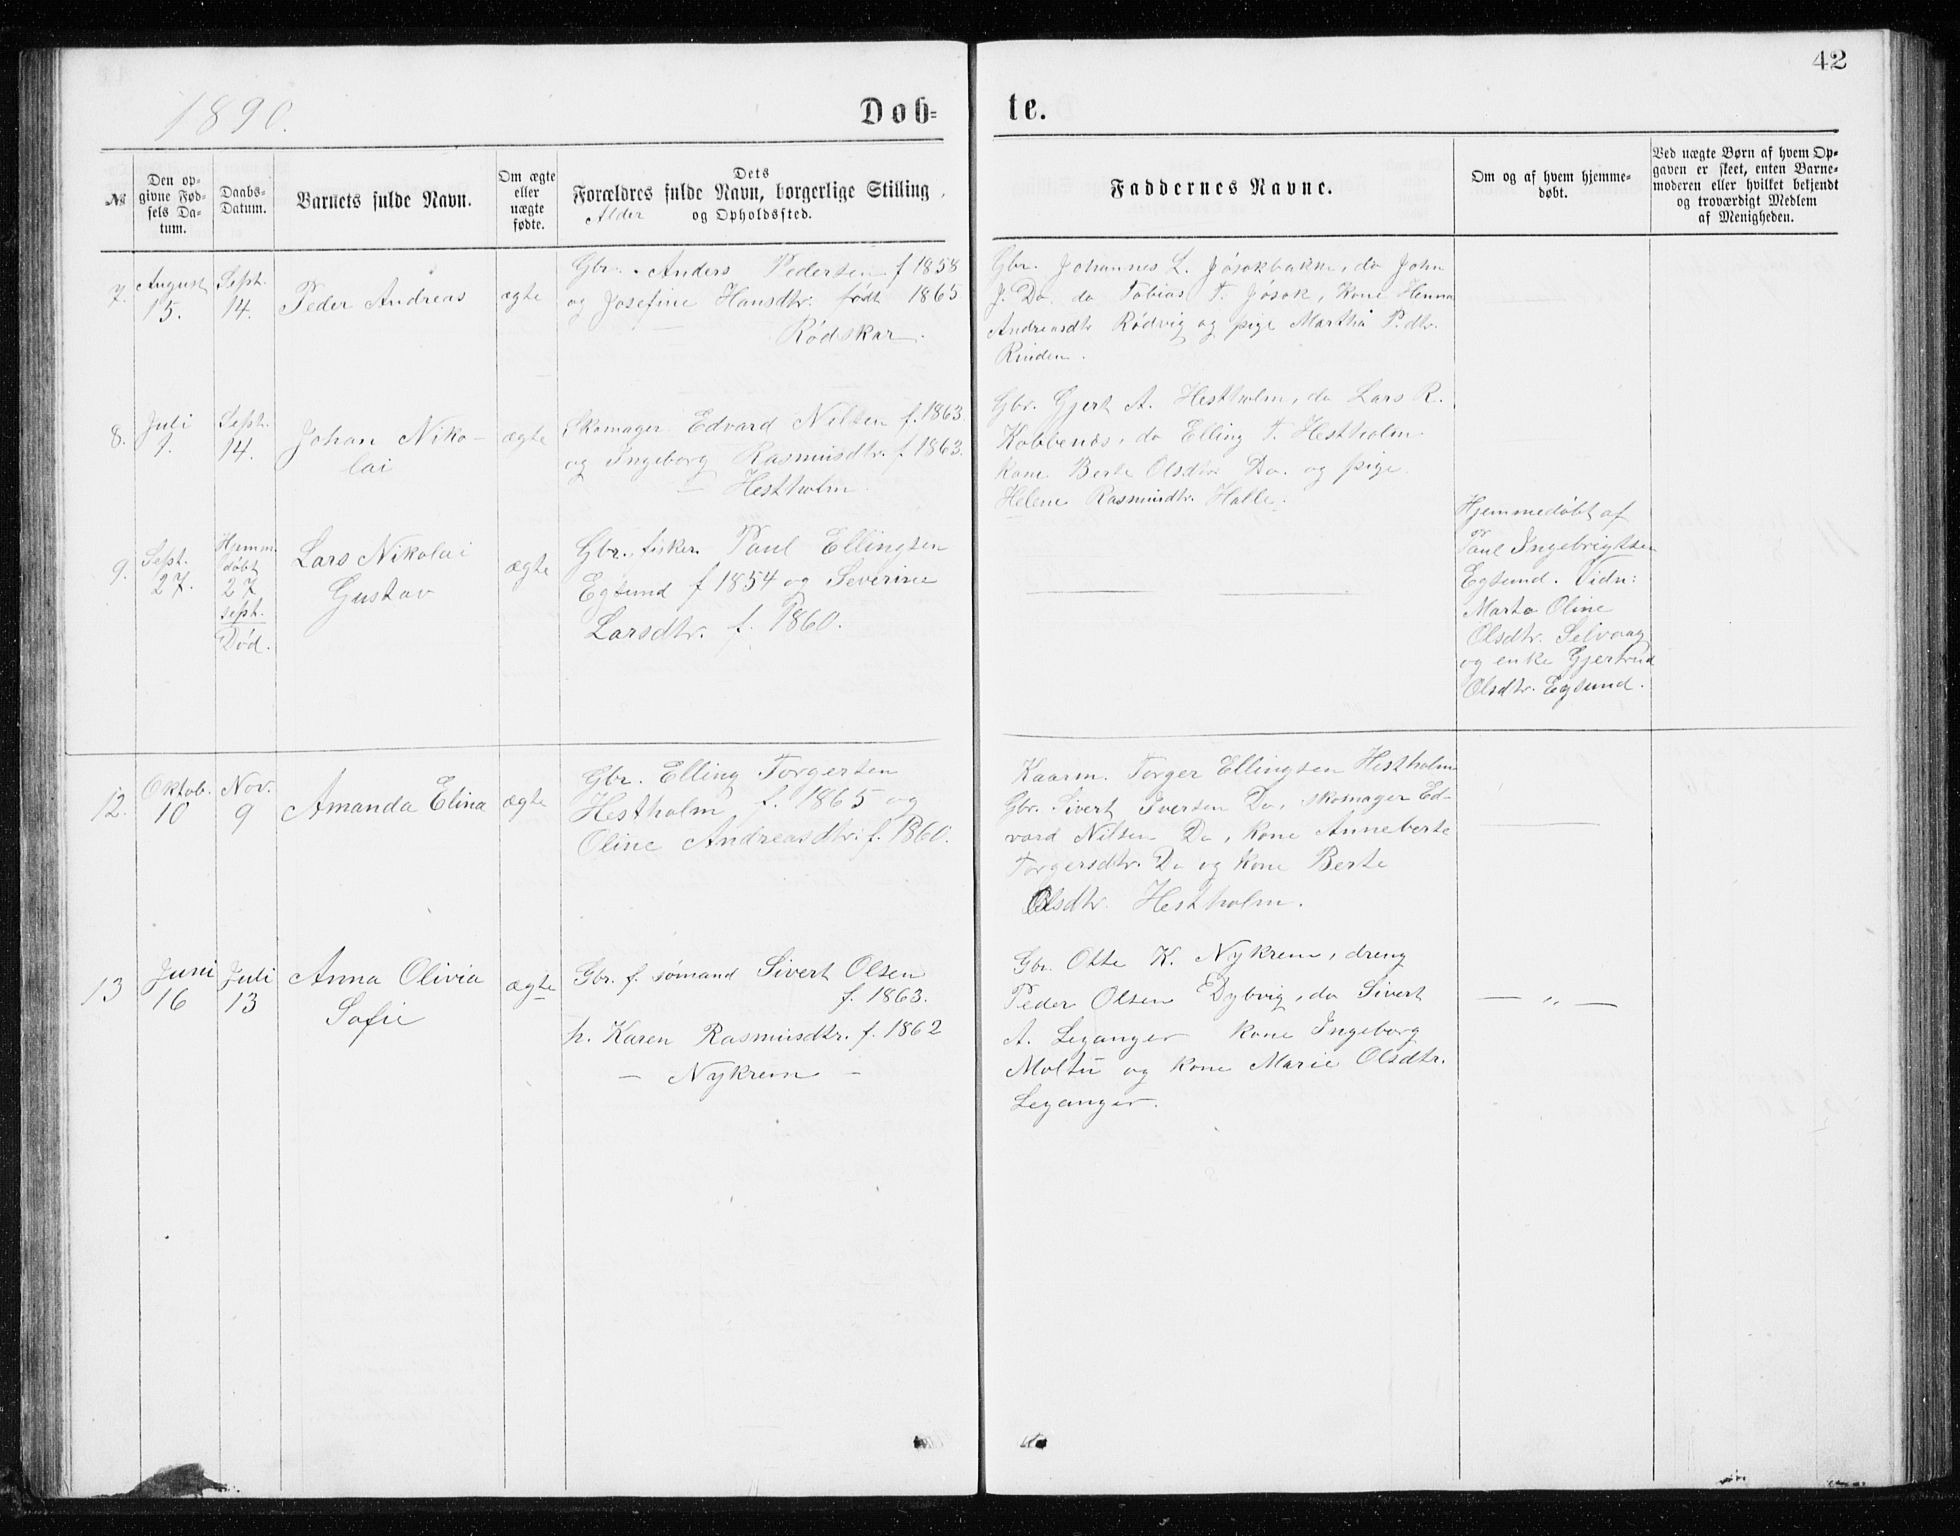 42
1890.
Døb-
te.
№
Den op-
givne Fød-
sels Da-
tum.
Daabs-
Datum.
Barnets fulde Navn.
Om ægte
eller
uægte
fødte.
Dets
Forældres fulde Navn, borgerlige Stilling,
Alder og Opholdssted.
Faddernes Navne.
Om og af hvem hjemme-
døbt.
Ved uægte Børn af hvem Op-
gaven er skeet, enten Barne-
moderen eller hvilket bekjendt
og troværdigt Medlem
af Menigheden.
7.
August
15.
Sept.
14.
Peder Andreas
ægte
Gbr. Anders Pedersen f 1858
og Josefine Hansdtr. født 1865
Rødskar.
Gbr. Johannes L. Jøsokbakke, do John
J. Do. do Tobias T. Jøsok, Kone Henna
Andreasdtr Rødvig og pige Martha P.dtr.
Rinden.
8.
Juli
1.
Sept.
14.
Johan Niko-
lai
ægte
Skomager Edvard Nilsen f. 1863
og Ingeborg Rasmusdtr. f. 1863.
– Hestholm
Gbr. Gjert A. Hestholm, do Lars R.
Kobbenæs, do Elling T. Hestholm
kone Berte Olsdtr Do. og pige
Helene Rasmusdtr. Halle.
9.
Sept.
27.
Hjemm
døbt
27
sept.
Død.
Lars Nikolai
Gustav
ægte
Gbr. fisker. Paul Ellingsen
Egsund f 1854 og Severine
Larsdtr. f. 1860.
Hjemmedøbt af
Paul Ingebrigtsen
Egsund. Vidn:
Marta Oline
Olsdtr. Selvaag
og enke Gjertrud
Olsdtr. Egsund.
12.
Oktob.
10
Nov.
9
Amanda Elina
ægte
Gbr. Elling Torgersen
Hestholm f. 1865 og
Oline Andreasdtr. f. 1860.
Kaarm. Torger Ellingsen Hestholm
Gbr. Sivert Iversen Do, skomager Ed-
vard Nilsen Do, kone Anneberte
Torgersdtr. Do og kone Berte
Olsdtr. Hestholm.
13
Juni
16
Juli
13
Anna Olivia
Sofie
ægte
Gbr. f. sømand Sivert Olsen
f. 1863.
h. Karen Rasmusdtr. f. 1862
– Nykrem –
Gbr. Otte K. Nykrem, dreng
Peder Olsen Dybvig, do Sivert
A. Leganger kone Ingeborg
Moltu og kone Marie Olsdtr.
Leganger.
— „ —